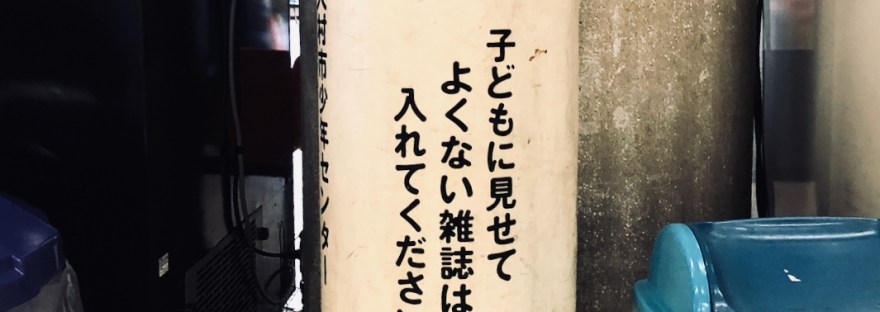 子どもに見せて
よくない雑誌は
入れてくださ
村市少年センター